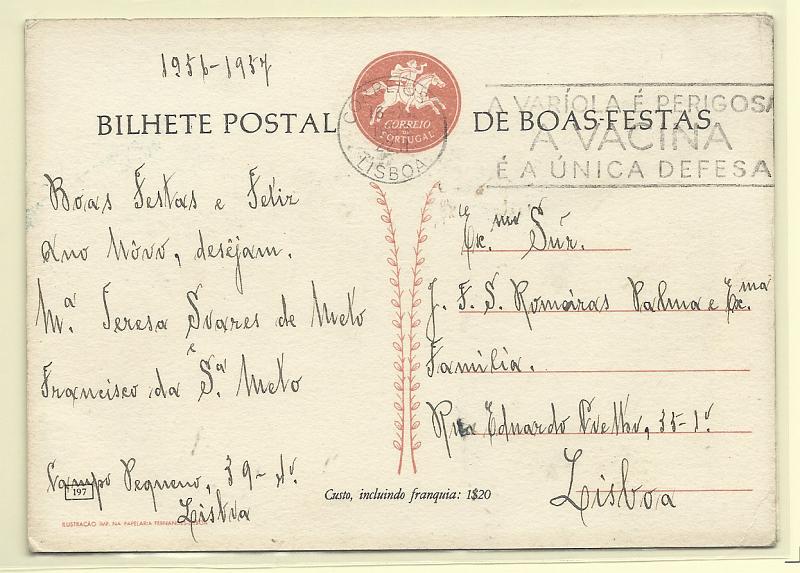 1956-1957
BILHETE POSTAL DE BOAS-FESTAS
CORREIO
DE
PORTUGAL
LISBOA
A VARÍOLA É PERIGOSA
A VACINA
É A ÚNICA DEFESA
Boas Festas e Feliz
Ano Nôvo, desêjam.
M.ª Teresa Soares de Melo
e
Francisco da S.ª Melo
Campo Pequeno, 39-4º.
Lisboa
197
ILUSTRAÇÃO IMP. NA PAPELARIA FERNANDES
Custo, incluindo franquia: 1$20
Ex.mo Snr.
J. F. S. Romeiras Palma e Ex.ma
Família.
Rua Eduardo Coelho, 35-1º
Lisboa